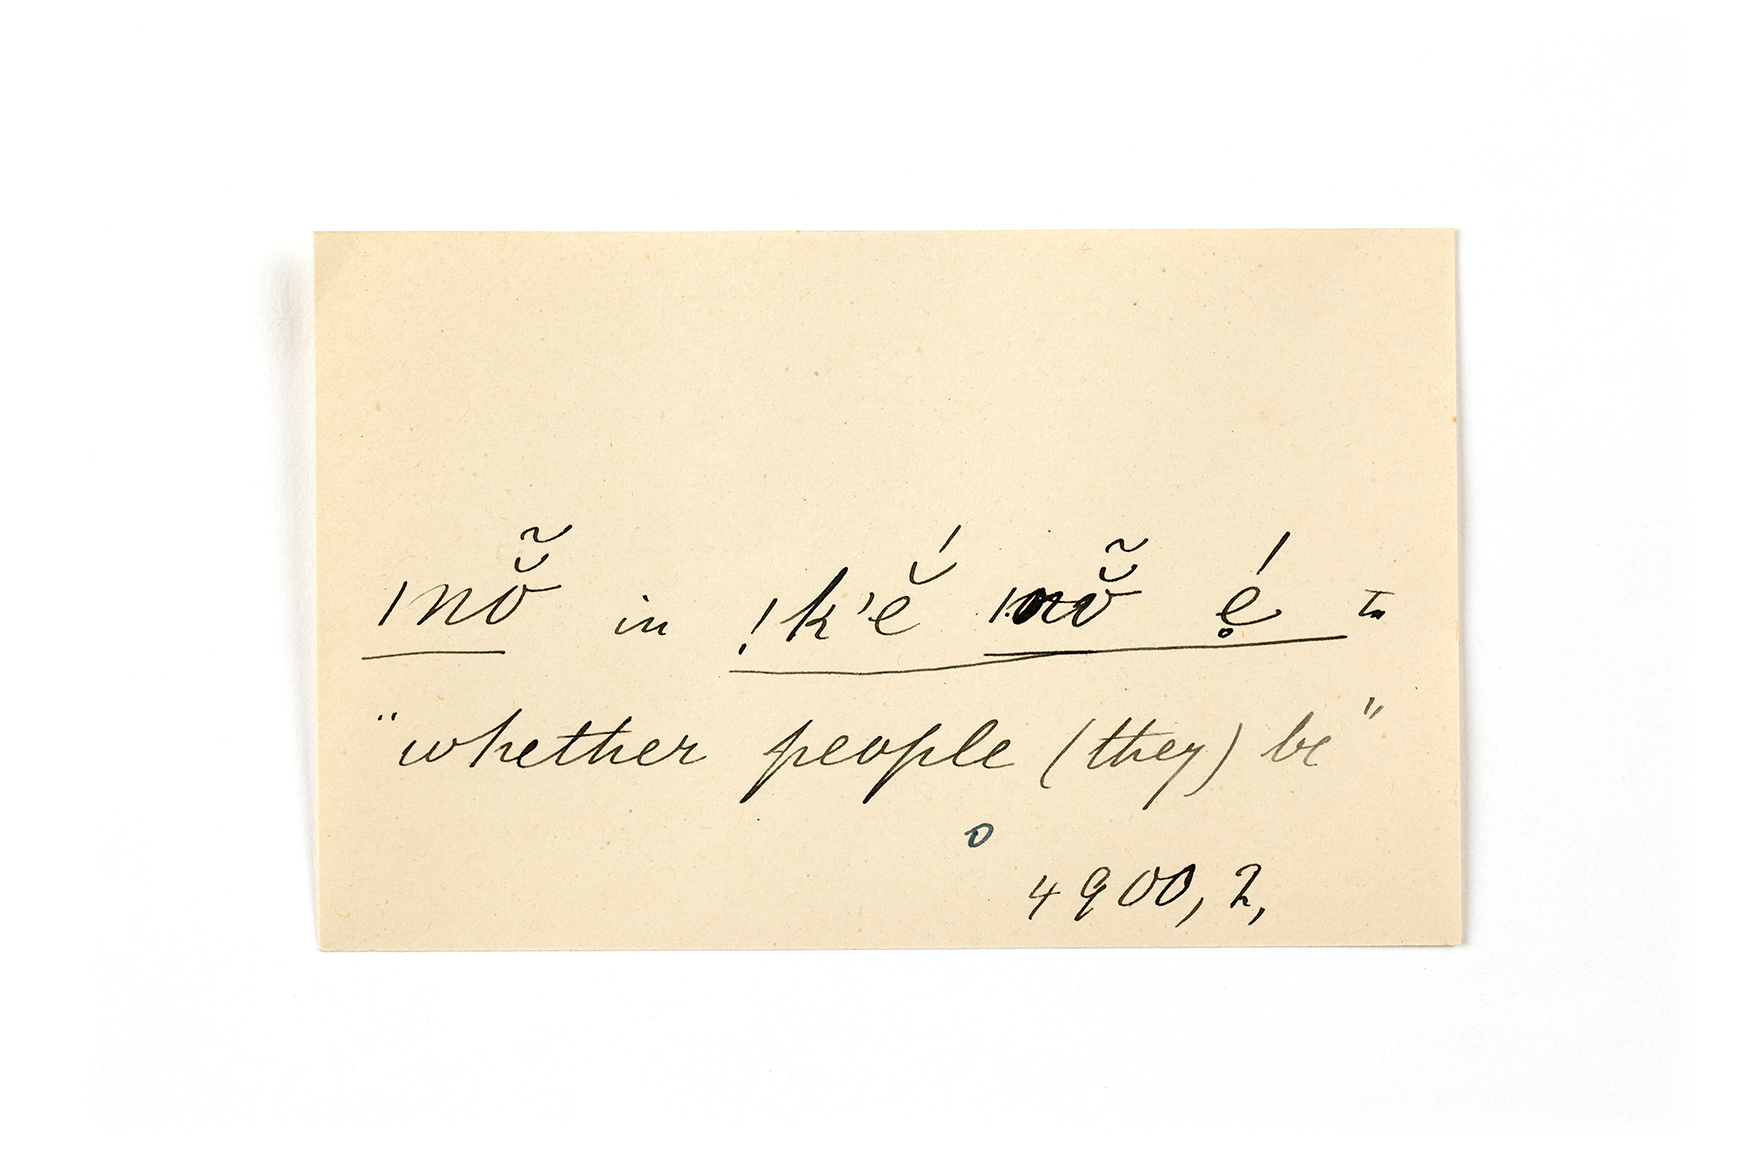 ǀnŏ̃ in ǃk'ĕ́ ǀnŏ̃ é̥ ta
"whether people (they) be"
o
4900, 2,